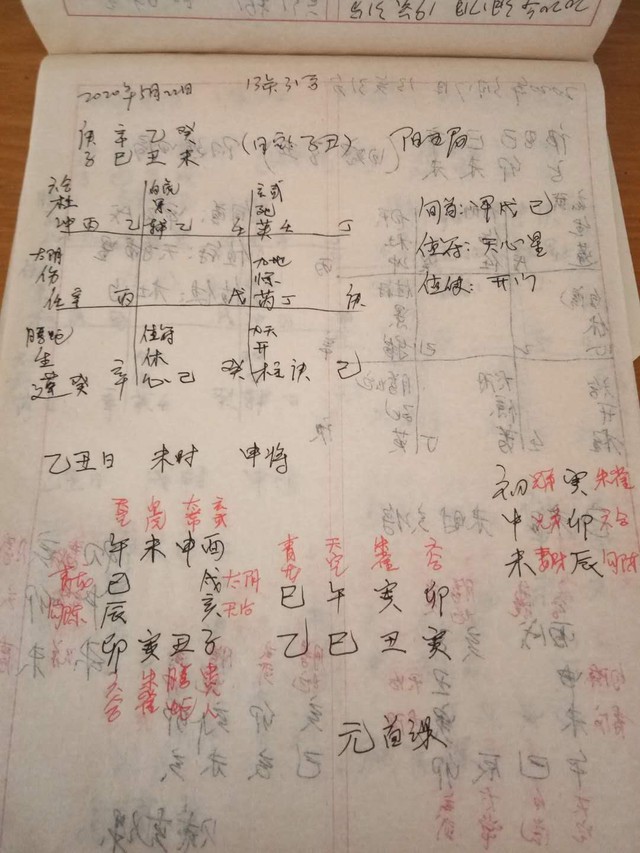 2020年5月22日 13点31分
庚 辛 乙 癸
子 巳 丑 未
(日空子丑)
阳五局
六合
杜
冲 丙 乙
白虎
景
辅 乙 壬
玄武
死
英 壬 丁
旬首:甲戌 己
值符:天心星
值使:开门
太阴
伤
任 辛 丙
戊
九地
惊
芮 丁 庚
腾蛇
生
蓬 癸 辛
值符
休
心 己 癸
九天
开
柱 庚 己
乙丑日 未时 申将
初 兄弟 寅 朱雀
中 兄弟 卯 六合
末 妻财 辰 勾陈
天空 白虎 太常 玄武
午 未 申 酉
青龙 巳 戌 太阴
勾陈 辰 亥 天后
卯 寅 丑 子
六合 朱雀 腾蛇 贵人
青龙 天空 朱雀 六合
巳 午 寅 卯
乙 巳 丑 寅
元首课